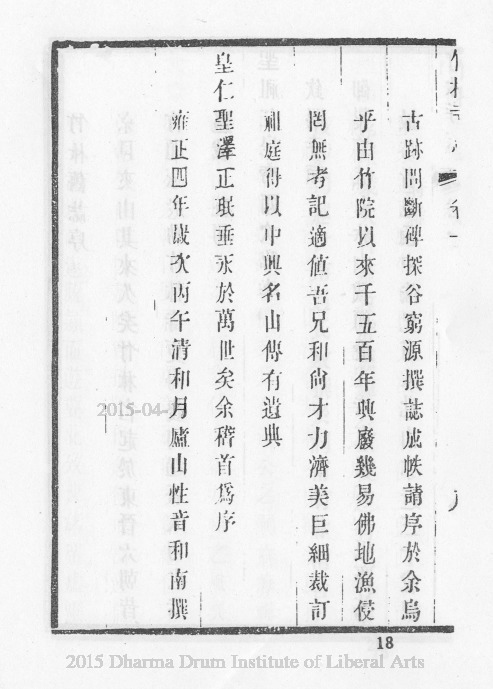 古跡問斷碑探谷窮源撰誌成帙請序於余烏
乎由竹院以來千五百年興廢幾易佛地漁侵
罔無考記適值吾兄和尚才力濟美巨細裁訂
祖庭得以中興名山傳有遺典
皇仁聖澤正珉垂永於萬世矣余稽首為序
雍正四年歲次丙午清和月廬山性音和南撰
18
2015-04-
2015 Dharma Drum Institute of Liberal Arts